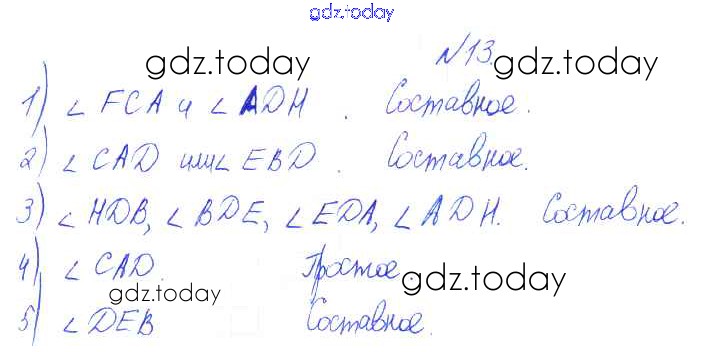 gdz.today
N13.
gdz.today gdz.today
1) ∠ FCA и ∠ ADH . Составное.
2) ∠ CAD или ∠ EBD . Составное.
3) ∠ HDB, ∠ BDE, ∠ EDA, ∠ ADH. Составное.
4) ∠ CAD. Простое.
gdz.today gdz.today
5) ∠ DEB Составное.